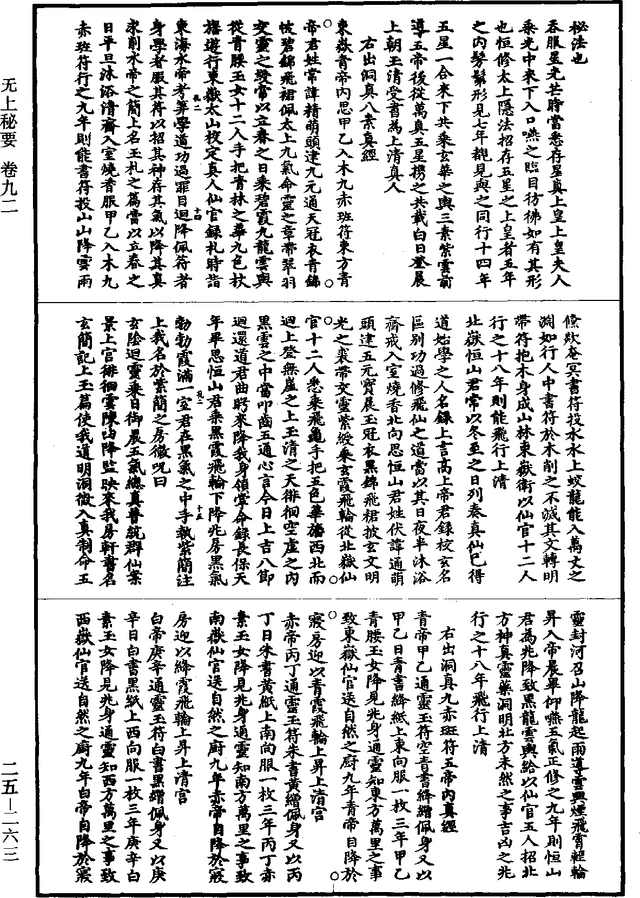 秘法也
吞服星光芒時當悉存星真上皇上皇夫人
乘光中來下入口嚥之臨目彷彿如有其形
也恒修太上隱法招存五星之上皇者五年
之内髣髴形見七年覩見與之同行十四年
五星一合來下共乘玄華之輿三素紫雲前
導五帝後從萬真五星携之共載白日登晨
上朝玉清受書為上清真人
右出洞真八素真經
東嶽青帝内思甲乙入木九赤班符東方青
帝君姓常諱精萌頭建九元通天冠衣青錦
帔碧錦飛裙佩太上九氣命靈之章帶翠羽
交靈之綬常以立春之日乘碧霞九龍雲輿
從青腰玉女十二人手把青林之華九色杖
旛遊行東嶽太山校定真人仙官録札時詣
東海水帝考筭學道功過罪目迴降佩符者
身學者服其符以招其神存其氣以降其真
求削水帝之簡上名玉札之篇當以立春之
日平旦沐浴清齋入室燒香服甲乙入木九
赤班符行之九年則能書符投山山降雲雨
倏欻奄冥書符投水水上蛟龍能入萬丈之
淵如行人中書符於木削之不滅其文轉明
帶符抱木身成山林東嶽衛以仙官十二人
行之十八年則能飛行上清
北嶽恒山君常以冬至之日列奏真仙已得
道始學之人名録上言高上帝君録校玄名
區别功過修飛仙之道當以其日夜半沐浴
齋戒入室燒香北向思恒山君姓伏諱通萌
頭建五元寶晨玉冠衣黑錦飛裙披玄文明
光之裘帶交靈紫綬乘玄霞飛輪從北嶽仙
官十二人悉乘飛黽手把五色華旛西北而
迴上登無崖之上玉清之天徘徊空虚之内
黑雲之中當叩齒五通心言今日上吉八節
迴還道君曲眄來降我身領掌命録長保天
年畢思恒山君乘黑霞飛輪下降兆房黑氣
勃勃霞滿一室君在黑氣之中手執紫簡注
上我名於紫簡之房微呪曰
玄陰迴靈乘日御晨五氣總真普統群仙業
景上宫徘徊雲陳出降監映來我房軒書名
玄簡記上玉篇使我道明洞徹入真制命五
靈封河召山降龍起雨導雲興煙飛霄輕輪
昇入帝晨畢仰嚥五氣正修之九年則恒山
君為兆降致黑龍雲輿給以仙官五人招北
方神真靈藥洞明北方未然之事吉凶之兆
行之十八年飛行上清
右出洞真九赤班符五帝内真經
青帝甲乙通靈玉符空青書絳繒佩身又以
甲乙日青書絳紙上東向服一枚三年甲乙
青腰玉女降見兆身通靈知東方萬里之事
致東嶽仙官送自然之厨九年青帝自降於
寢房迎以青霞飛輪上昇上清宫
赤帝丙丁通靈玉符朱書黄繒佩身又以丙
丁日朱書黄紙上南向服一枚三年丙丁赤
素玉女降見兆身通靈知南方萬里之事致
南嶽仙官送自然之厨九年赤帝自降於寢
房迎以絳霞飛輪上昇上清宫
白帝庚辛通靈玉符白書黑繒佩身又以庚
辛日白書黑紙上西向服一枚三年庚辛白
素玉女降見兆身通靈知西方萬里之事致
西嶽仙官送自然之厨九年白帝自降於寢
无上秘要 卷九二
二五—二六三